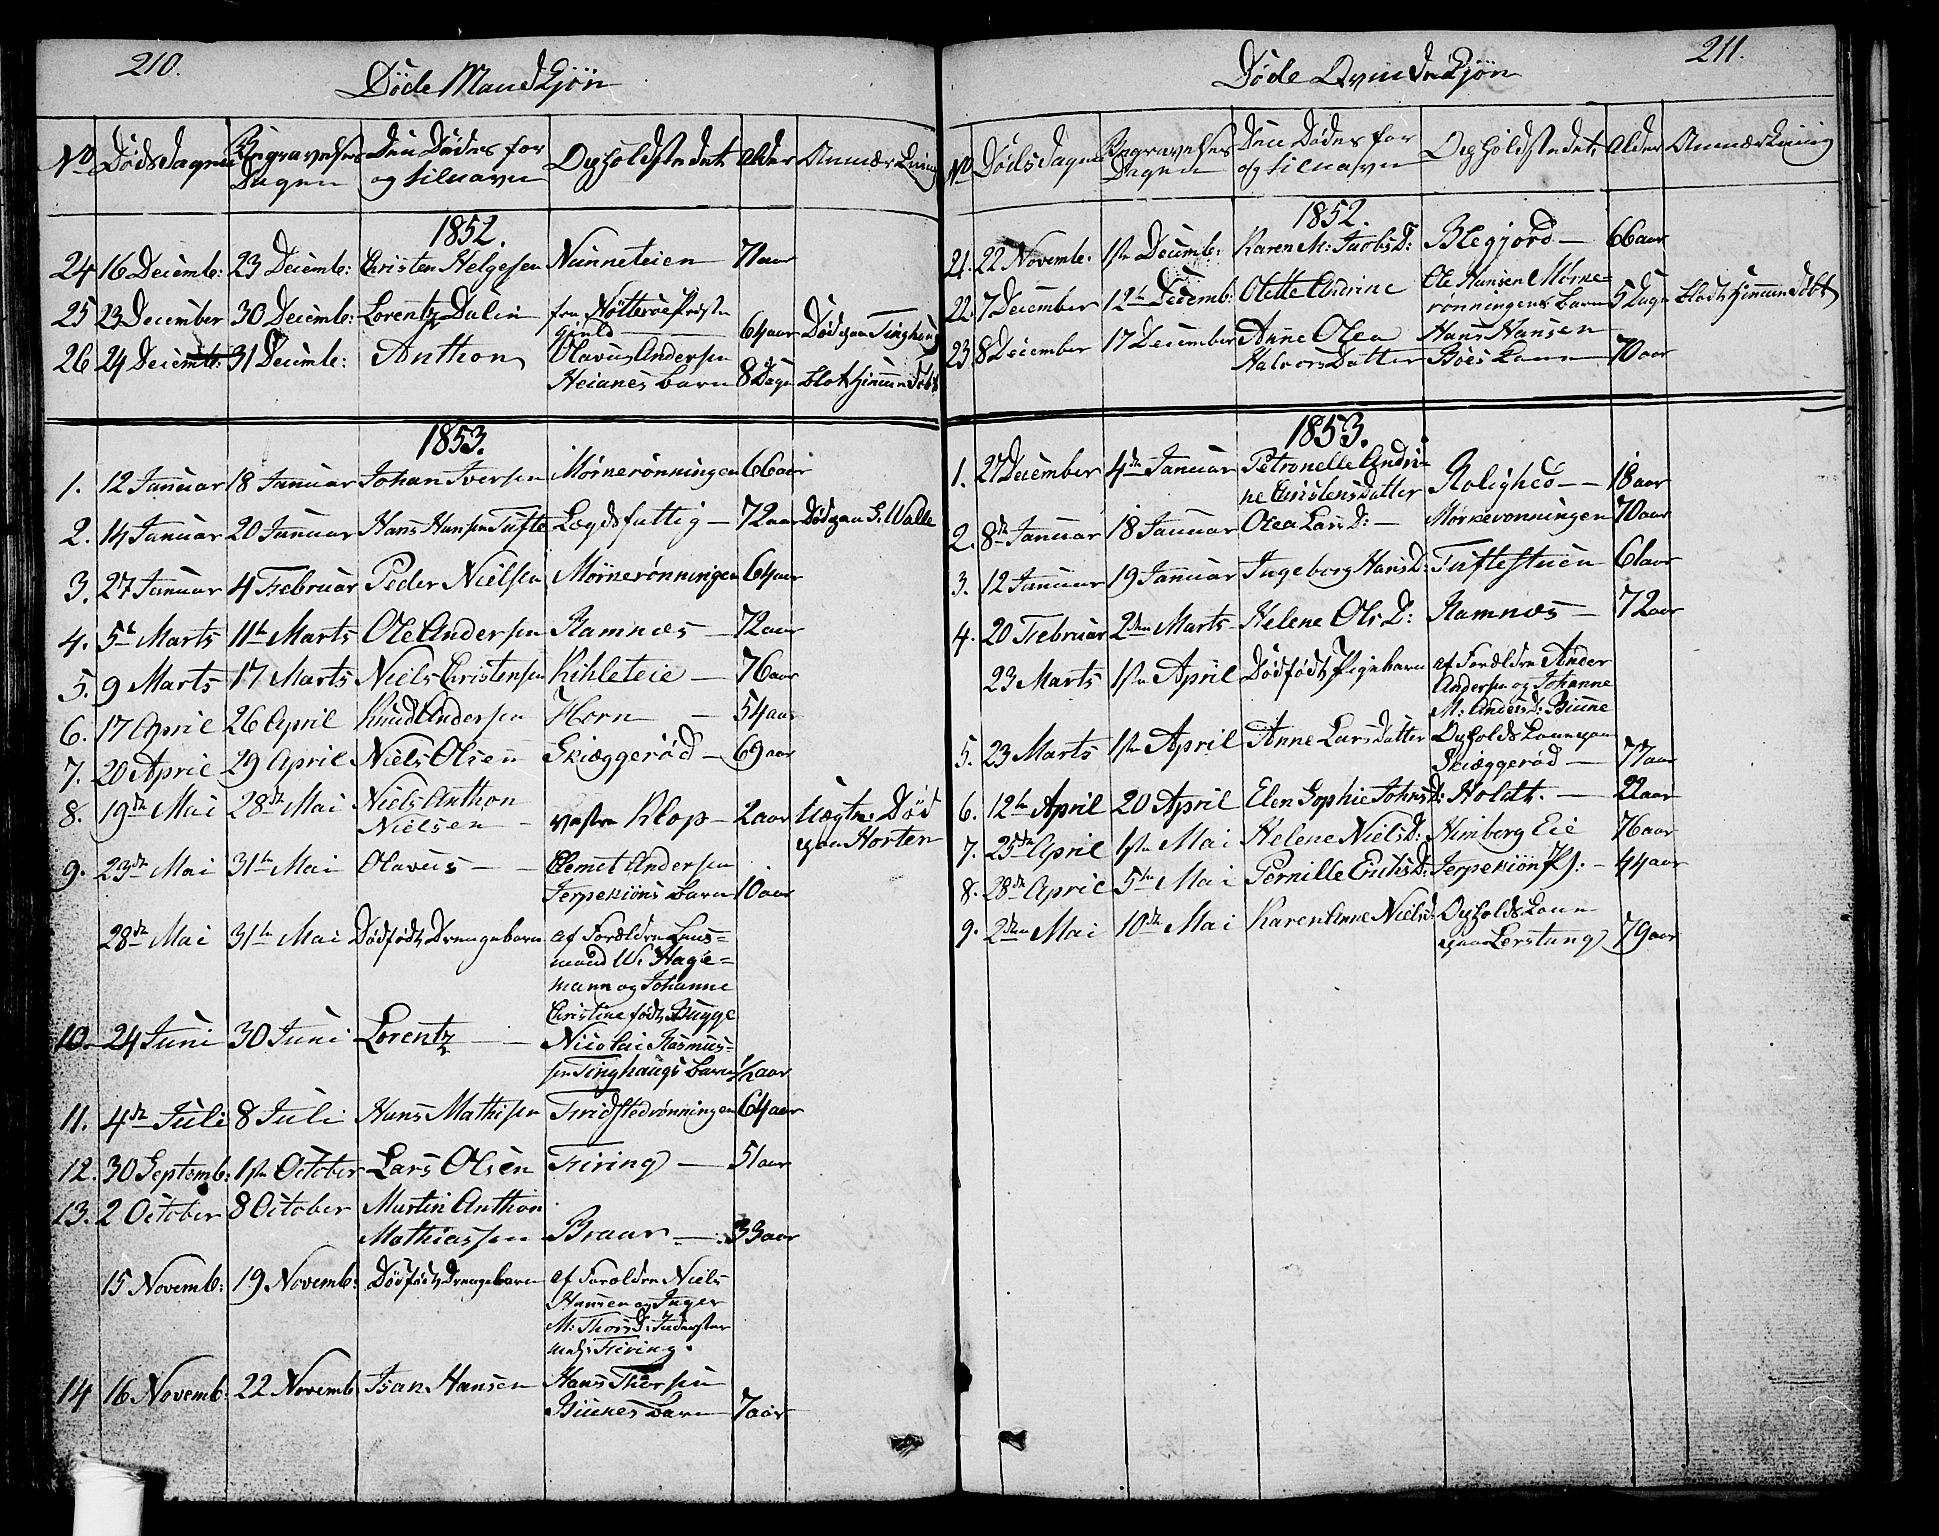 210.
Døde Mandkjøn
No Dødsdagen Begravelses Dagen Den Dødes for og tilnavn Opholdstedet Alder Anmærkning
1852.
24 16 Decemb: 23 Decemb: Christen Helgesen Nunneteien 71 aar
25 23 December 30 Decemb: Lorentz Dalin fra Nøtterøe Præste
gjeld 64 aar Død paa Tinghaug
26 24 Decemb: 31 Decemb: Anthon Olavus Andersen
Heianes barn 8 Dage blot hjemme Døbt
1853.
1. 12 Januar 18 Januar Johan Iversen Mørnerønningen 66 aar
2. 14 Januar 20 Januar Hans Hansen Tufte Lægdsfattig 72 aar Død paa G. Walle
3. 27 Januar 4 Februar Peder Nielsen Mørnerønningen 64 aar
4. 5te Marts 11te Marts Ole Andersen Ramnæs 72 aar
5. 9 Marts 17 Marts Niels Christensen Kihleteie 76 aar
6. 17 April 26 April Knud Andersen Horn 54 aar
7. 20 April 29 April Niels Olsen Skiæggerød 69 aar
8. 19de Mai 28de Mai Niels Anthon
Nielsen vestre Klop 2 aar Uægte: Død
paa Horten
9. 23de Mai 31te Mai Olavus Clemet Andersen
Jerpekiøns barn 10 aar
28de Mai 31te Mai Dødfødt Drengebarn af Forældre Lens=
mand W. Hage=
mann og Johanne
Christine født Bugge
10. 24 Juni 30 Juni Lorentz Nicolai Rasmus=
sen Tinghaugs barn 1/2 aar
11. 4de Juli 8 Juli Hans Mathisen Fridstedrønningen 64 aar
12. 30 Septemb: 1ste October Lars Olsen Firing 51 aar
13. 2 October 8 October Martin Anthon
Mathiassen Braar 33 aar
15 Novemb: 19 Novemb: Dødfødt Drengebarn af Forældre Niels
Hansen og Inger
M: Thorsd: Inderster
med Firing.
14 16 Novemb: 22 Novemb Isan Hansen Hans Thorsen
Biunes barn 7 aar
211.
Døde Qvindekjøn
No Dødsdagen Begravelses Dagen Den Dødes for og tilnavn Opholdstedet Alder Anmærkning
1852.
21. 22 Novemb: 1ste Decemb: Karen M: Jacobsd: Blegjord 66 aar
22. 7 December 12te Decemb: Olette Andrine Ole Hansen Mørne=
rønningens barn 5 Dage blot hjemme Døbt
23. 8 December 17 December Anne Olea
Halvorsdatter Hans Hansen
Bøes kone 70 aar
1853.
1. 27 December 4de Januar Petronelle Andri=
ne Christensdatter Rolighed 18 aar
2. 8de Januar 18 Januar Olea Larsd: Mørkevonningen 70 aar
3. 12 Januar 19 Januar Ingeborg Hansd: Tuftestuen 61 aar
4. 20 Februar 2den Marts Helene Olsd: Ramnæs 72 aar
23 Marts 1ste April Dødfødt Pigebarn af Forældre Ander
Andersen og Johanne
M: Andersd: Biune
5. 23 Marts 1ste April Anne Larsdatter Opholds kone paa
Skiæggerød 77 aar
6. 12te April 20 April Elen Sophie Johnsd: Holdt. 22 aar
7. 25de April 1ste Mai Helene Nielsd: Himberg Eie 76 aar
8. 28de April 5te Mai Pernille Erichsd: Jerpekiøn Pl: 44 aar
9. 2den Mai 10de Mai Karen Anne Nielsd: Opholds kone
paa Lerstang 79 aar